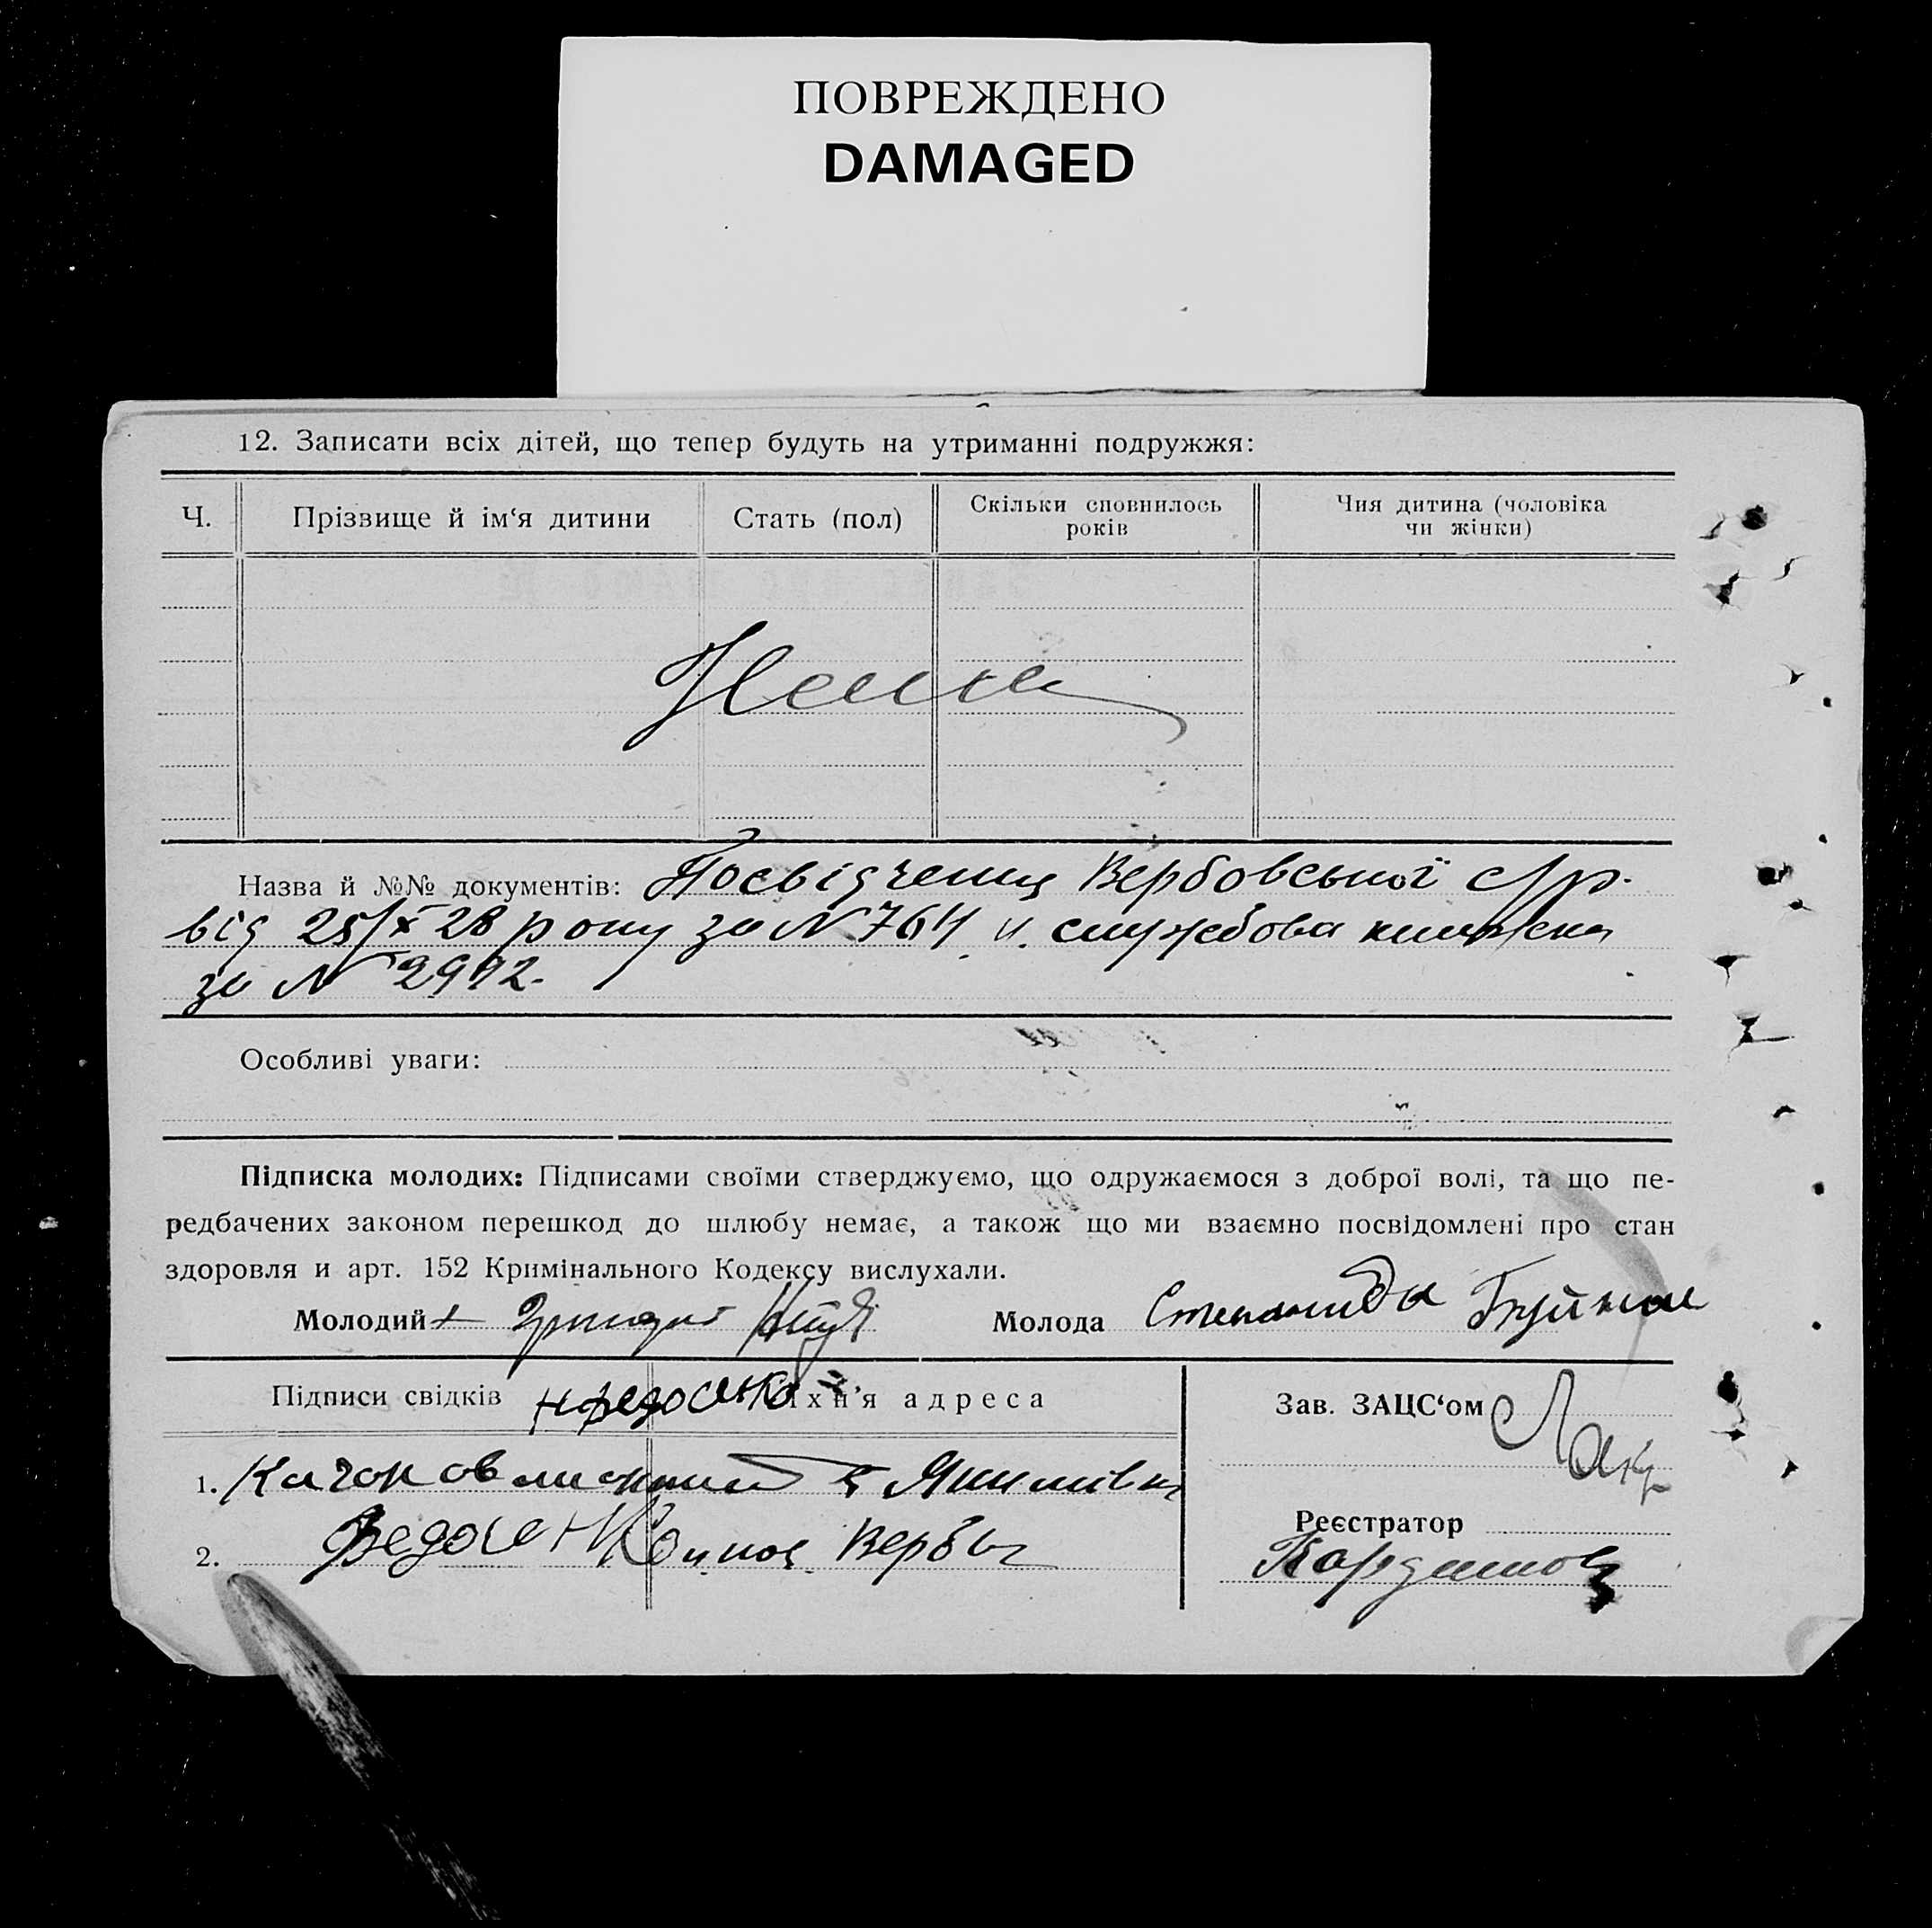 ПОВРЕЖДЕНО
DAMAGED
12. Записати всіх дітей, що тепер будуть на утриманні подружжя:
Ч. Прізвище й ім‘я дитини Стать (пол) Скільки сповнилось років Чия дитина (чоловіка чи жінки)
Нема
Назва й №№ документів: Посвідчення Вербовської с/р.
від 25/X 28 року за N 764 и службова книжка
за N 2992.
Особливі уваги:
Підписка молодих: Підписами своїми стверджуємо, що одружаємося з доброї волі, та що пе-
редбачених законом перешкод до шлюбу немає, а також що ми взаємно посвідомлені про стан
здоровля и арт. 152 Кримінального Кодексу вислухали.
Молодий Молода Степанида
Підписи свідків їхн’я адреса Зав. ЗАЦС‘ом
1.
Реєстратор
2. Верба